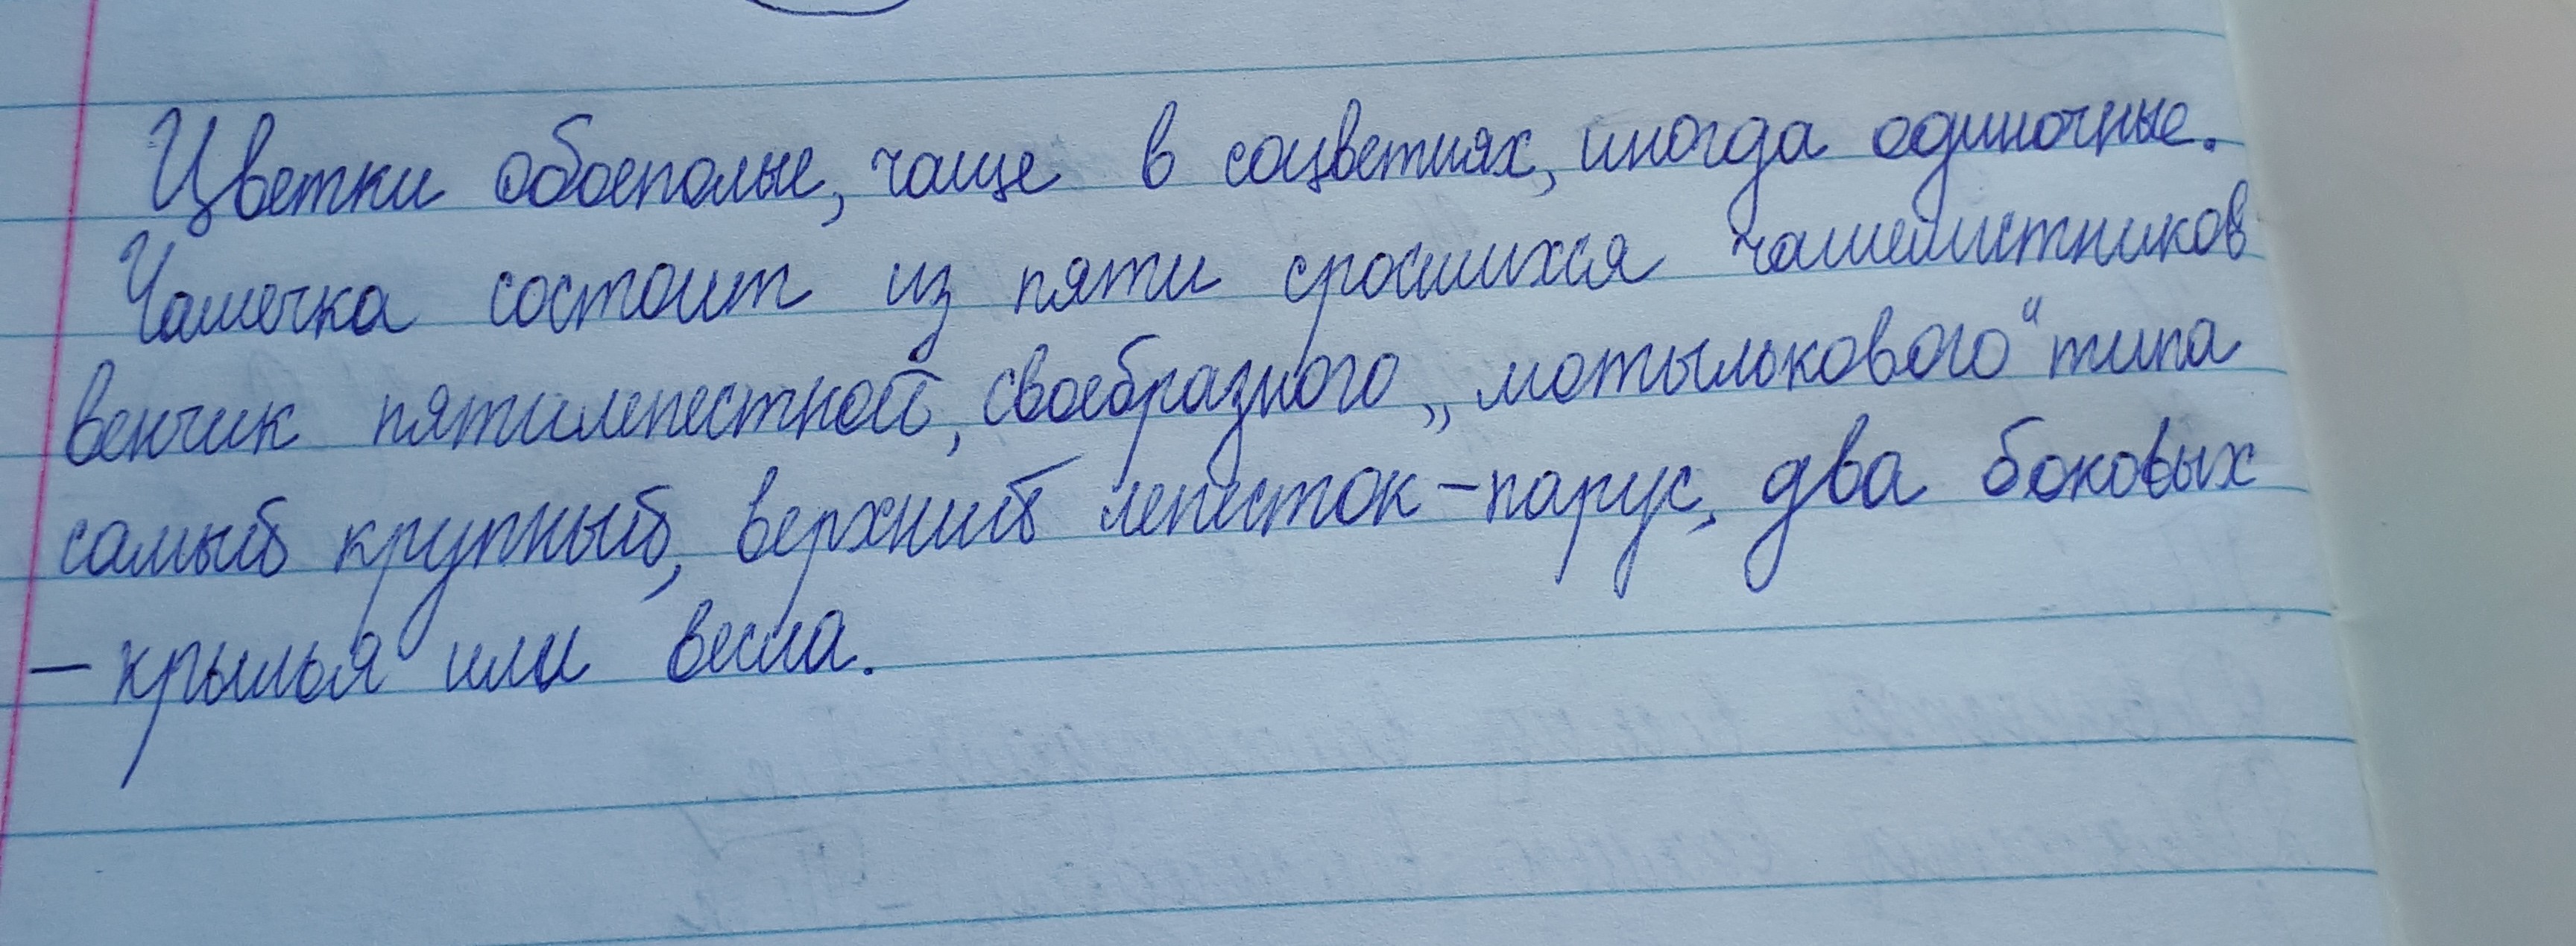 Цветки обоеполые, чаще в соцветиях, иногда одиночные.
Чашечка состоит из пяти сросшихся чашелистников
венчик пятилепестной, своебразного „мотылькового“ типа
самый крупный, верхний лепесток – парус, два боковых
– крылья или весла.